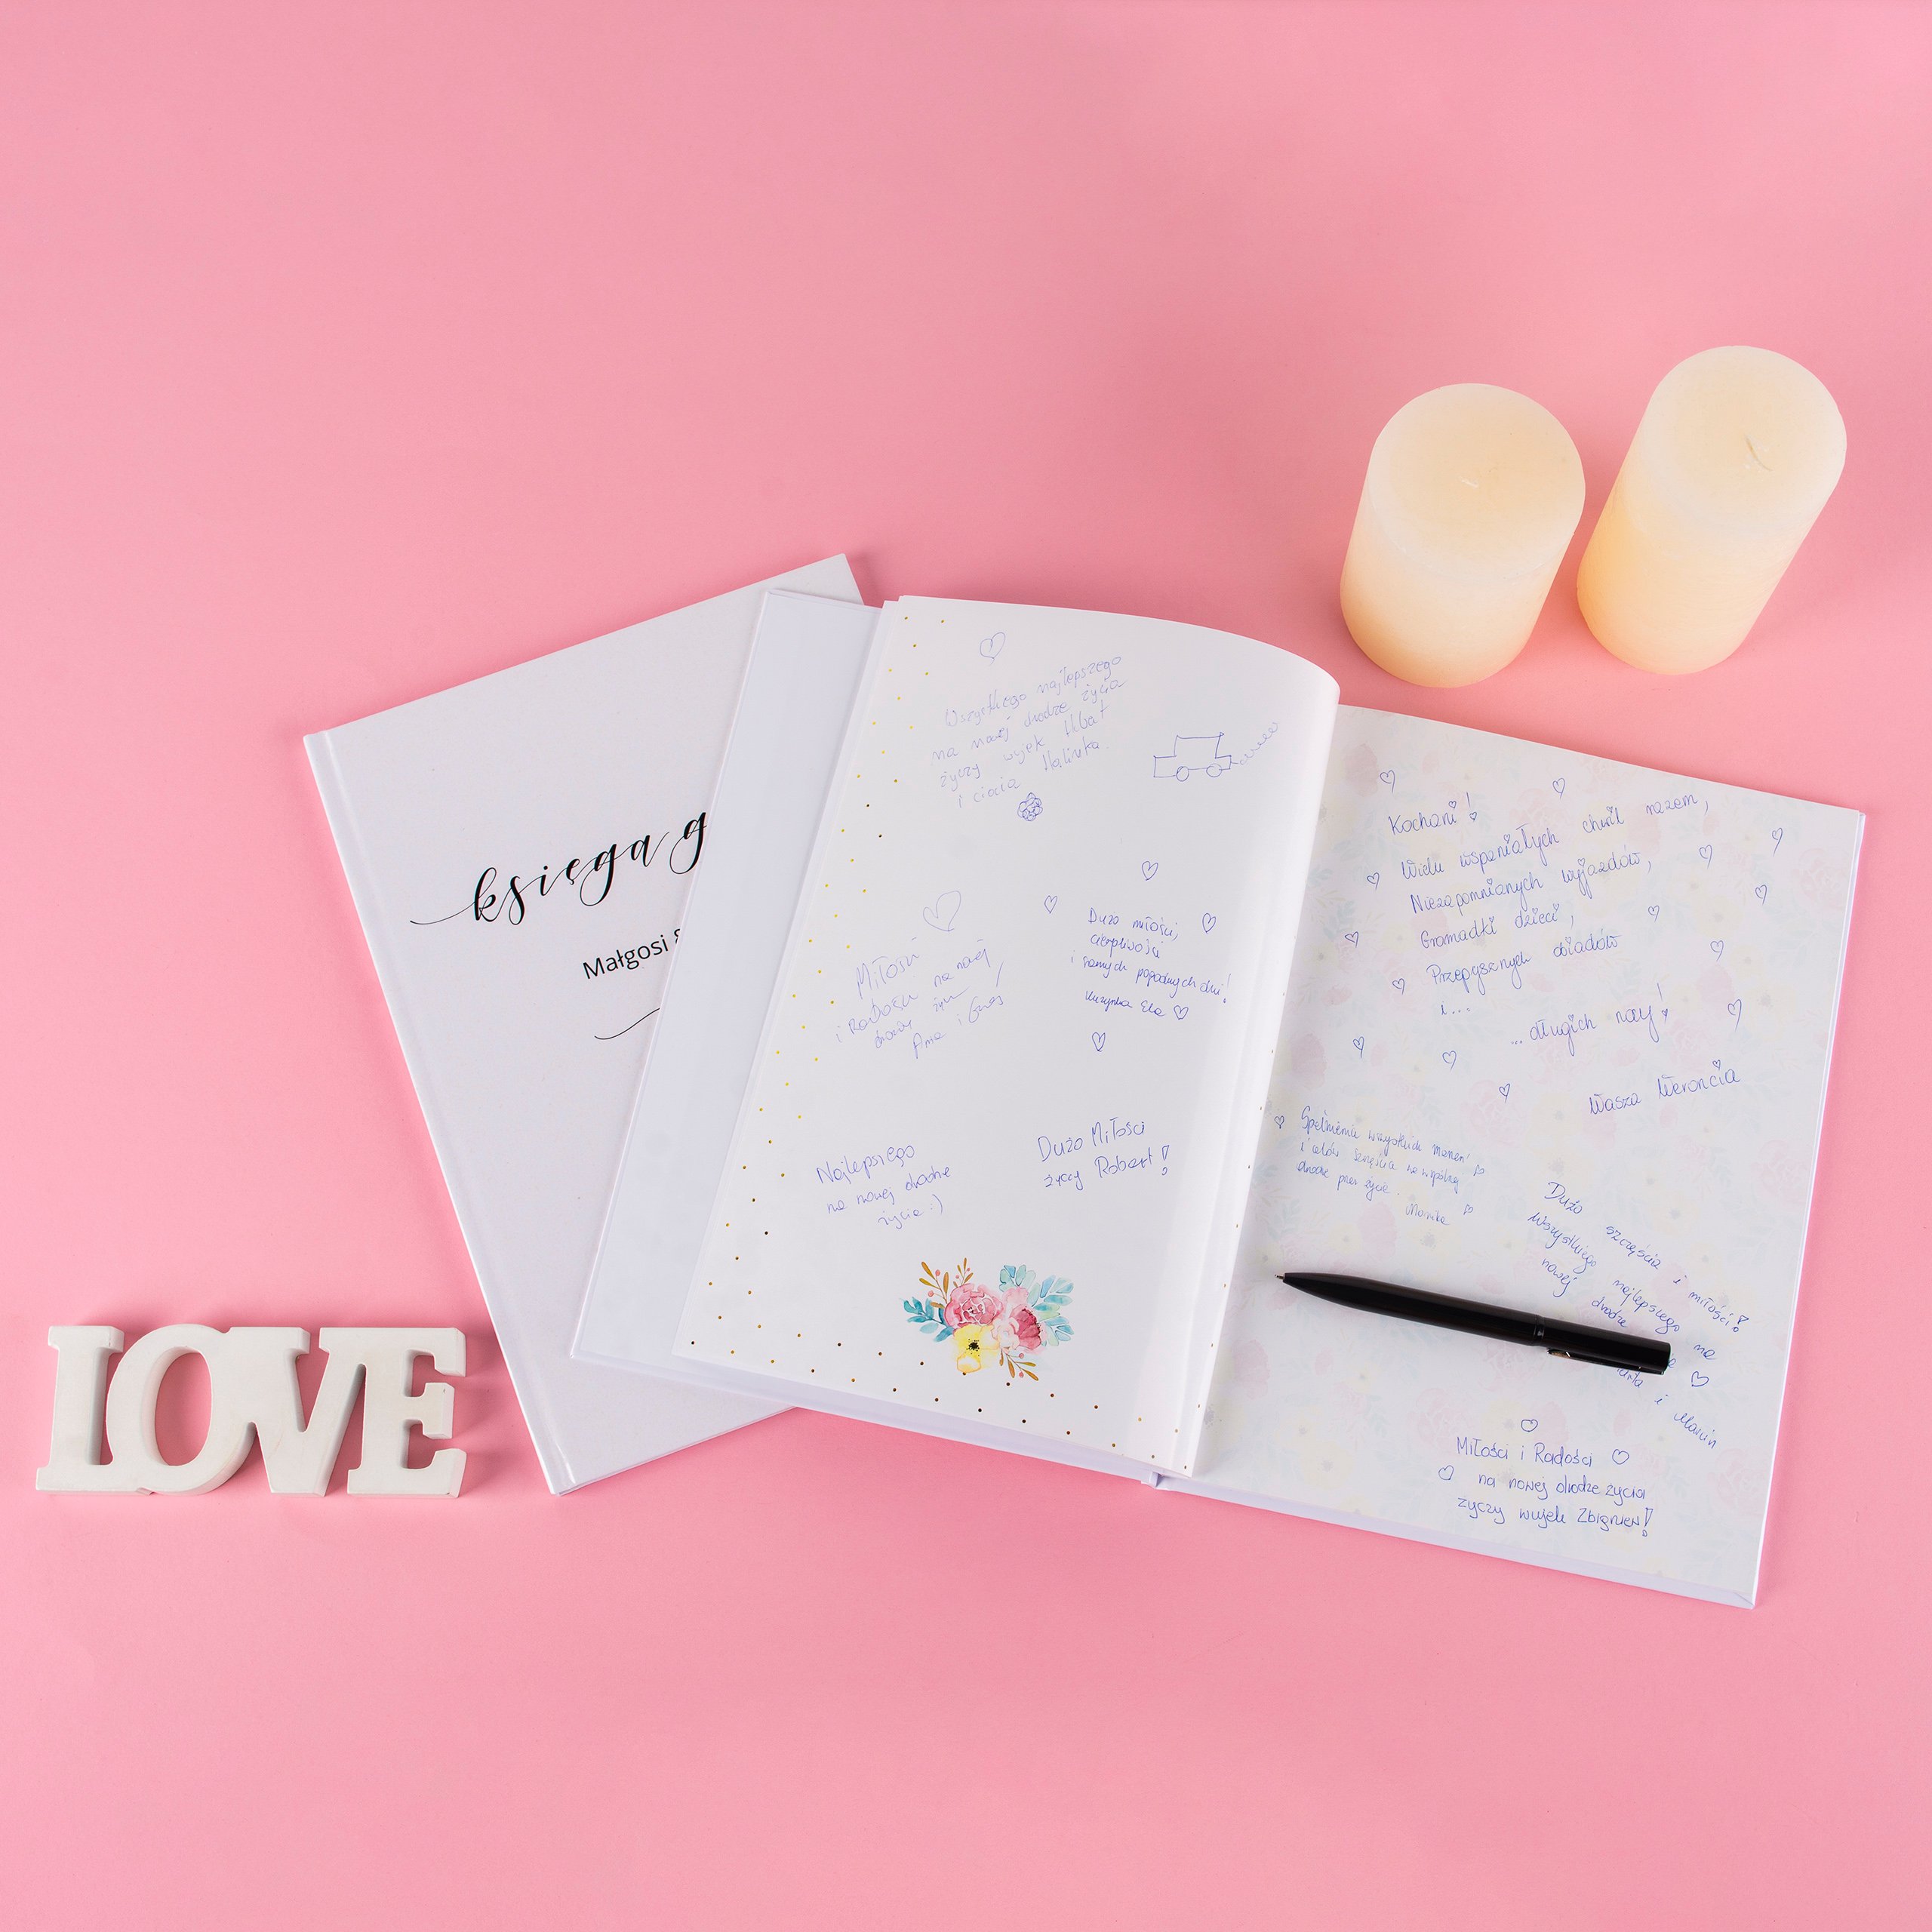 księga g
Małgosi &
LOVE
Wszystkiego najlepszego
na nowej drodze życia
życzy wujek Hubat
i ciocia Halinka.
Miłości
i Radości na nowej
drodze życia
Ania i
Dużo miłości,
cierpliwości
i samych pogodnych dni!
Kuzynka Ela
Najlepsiego
na nowej drodze
życia :)
Dużo Miłości
życzy Robert!
Kochani!
Wielu wspaniałych chwil razem,
Niezapomnianych wyjazdów,
Gromadki dzieci,
Przepysznych obiadów
i...
...długich nocy!
Wasza Weroncia
Spełnienia wszystkich marzeń
i celów. Szczęścia na wspólnej
drodze przez życie.
Monika
Dużo szczęścia i miłości!
Wszystkiego najlepszego na
nowej drodze
i Marcin
Miłości i Radości
na nowej drodze życia
życzy wujek Zbigniew!